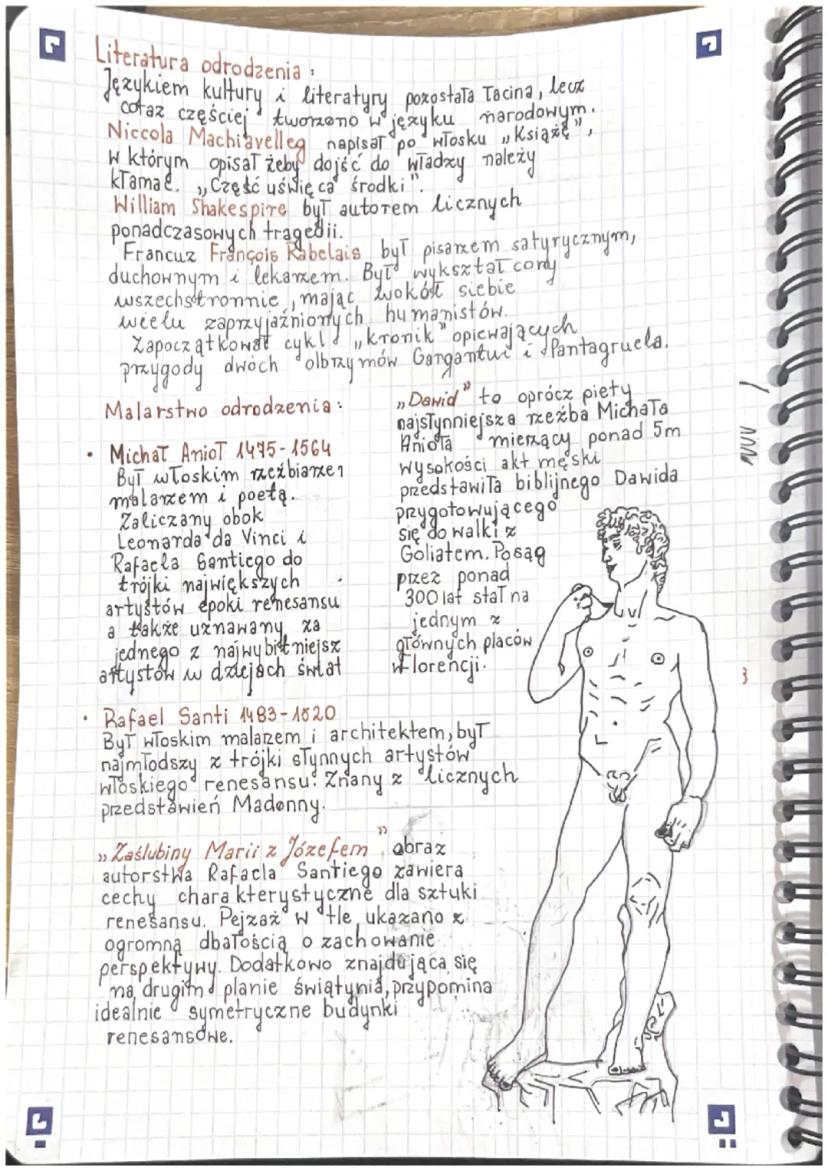 Literatura odrodzenia:
Językiem kultury i literatury pozostała Łacina, lecz
coraz częściej tworzono w języku narodowym.
Niccola Machiavelleg napisał po włosku „Książę",
w którym opisał żeby dojść do władzy należy
kłamać. „Część uświęca środki".
William Shakespire był autorem licznych
ponadczasowych tragedii.
Francuz François Rabelais był pisarzem satyrycznym,
duchownym i lekarzem. Był wykształcony
wszechstronnie, mając wokół siebie
wielu zaprzyjaźnionych humanistów.
Zapoczątkował cykl „kronik" opiewających
przygody dwóch olbrzymów Gargantui i Pantagruela.
Malarstwo odrodzenia:
• Michał Anioł 1475-1564
Był włoskim rzeźbiarzem
malarzem i poetą.
Zaliczany obok
Leonarda da Vinci i
Rafaela Santiego do
trójki największych
artystów epoki renesansu
a także uznawany za
jednego z najwybitniejsz
artystów w dziejach świat
„Dawid" to oprócz piety
najsłynniejsza rzeźba Michała
Anioła mierzący ponad 5m
wysokości akt męski
przedstawiła biblijnego Dawida
przygotowującego
się do walki z
Goliatem. Posąg
przez ponad
300 lat stał na
jednym z
głównych placów
Florencji.
• Rafael Santi 1483-1520
Był włoskim malarzem i architektem, był
najmłodszy z trójki słynnych artystów
włoskiego renesansu. Znany z licznych
przedstawień Madonny.
„Zaślubiny Marii z Józefem" obraz
autorstwa Rafaela Santiego zawiera
cechy charakterystyczne dla sztuki
renesansu. Pejzaż w tle ukazano z
ogromną dbałością o zachowanie
perspektywy. Dodatkowo znajdująca się
na drugim planie świątynia, przypomina
idealnie symetryczne budynki
renesansowe.